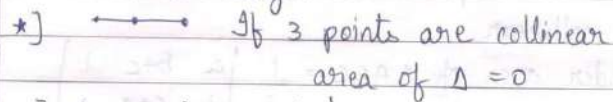 *] If 3 points are collinear
area of Δ = 0